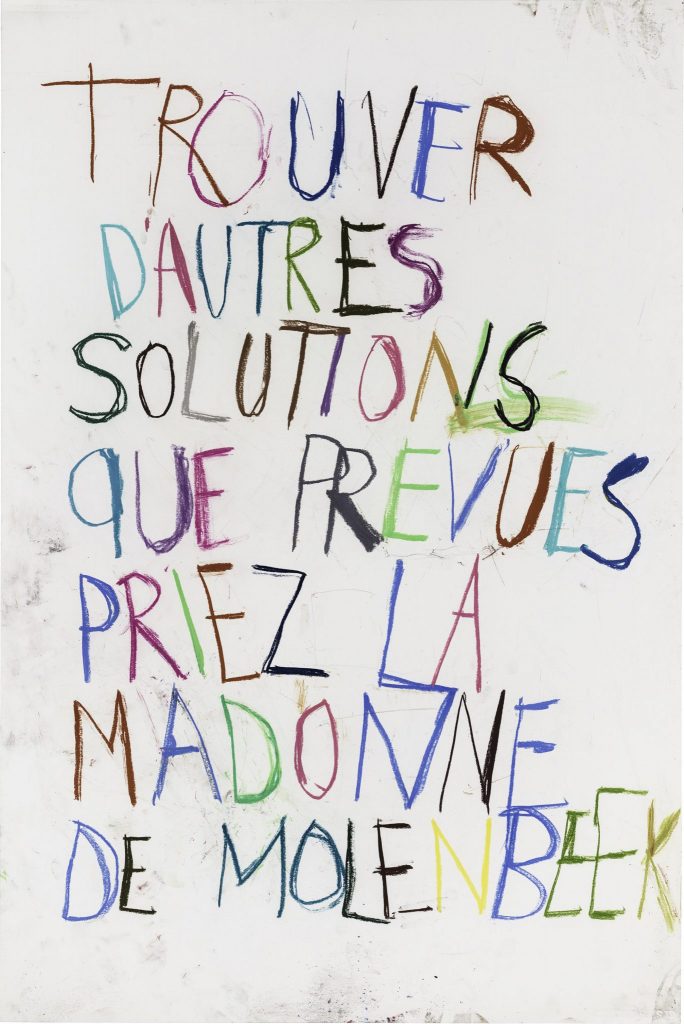 TROUVER
D'AUTRES
SOLUTIONS
QUE PREVUES
PRIEZ LA
MADONNE
DE MOLENBEEK